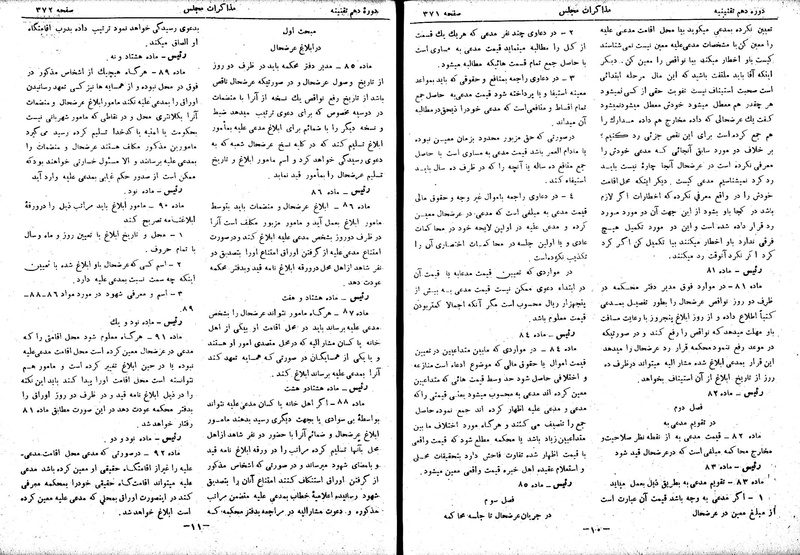 دوره دهم تقنینیه
مذاکرات مجلس
صفحه ۳۷۱
تعیین نکرده بمدعی میگوید بیا محل اقامت مدعی علیه
را معین کن یا مشخصات مدعی علیه معین نیست نمی‌شناسند
کیست باو اخطار میکند بیا نواقص را معین کن . دیگر
اینکه آقا باید ملتفت باشید که این مال مرحله ابتدائی
است صحبت استیناف نیست تفویت حقی از کسی نمیشود
هر چقدر هم معطل میشود خودش معطل میشود نمیشود
گفت یك عرضحالی که داده مخارج هم داده مدارك را
هم جمع کرده است برای این نقص جزئی رد کنیم ؟
بر خلاف دو مورد سابق آنجائی که مدعی خودش را
معرفی نکرده است در عرضحال آنجا چاره نیست باید
رد کرد نمیشناسیم مدعی کیست . دیگر اینکه محل اقامت
خودش را در واقع معرفی نکرده که اخطارات اگر لازم
باشد در کجا باو بشود از این جهت آن در مورد مورد
رد قرار داده شده است و این در مورد تکمیل هیچ
فرقی ندارد باو اخطار میکنند بیا تکمیل کن اگر کرد
کرد اگر نکرد آنوقت رد میکنند .
رئیس – ماده ۸۱
ماده ۸۱ – در موارد فوق مدیر دفتر محکمه در
ظرف دو روز نواقص عرضحال را بطور تفصیل بمدعی
کتباً اطلاع داده و از روز ابلاغ پنجروز با رعایت مسافت
باو مهلت میدهد که نواقص را رفع کند و در صورتیکه
در موعد رفع ننمود محکمه قرار رد عرضحال را میدهد
این قرار بمدعی ابلاغ شده مشار الیه میتواند در ظرف ده
روز از تاریخ ابلاغ از آن استیناف بخواهد .
رئیس – ماده ۸۲
فصل دوم
در تقویم مدعی به
ماده ۸۲ – قیمت مدعی به از نقطه نظر صلاحیت و
مخارج محاکمه مبلغی است که در عرضحال قید شود
رئیس – ماده ۸۳
ماده ۸۳ – تقویم مدعی به بطریق ذیل بعمل میاید
۱ – اگر مدعی به وجه باشد قیمت آن عبارت است
از مبلغ معین در عرضحال
۲ – در دعاوی چند نفر مدعی که هریك یك قسمت
از کل را مطالبه مینماید قیمت مدعی به مساوی است
با حاصل جمع تمام قسمت هائیکه مطالبه میشود .
۳ – در دعاوی راجعه بمنافع و حقوقی که باید بمواعد
معینه استیفا و یا پرداخته شود قیمت مدعی به حاصل جمع
تمام اقساط و منافعی است که مدعی خود را ذیحق در مطالبه
آن میداند .
در صورتی که حق مزبور محدود بزمان معین نبوده
و یا مادام العمر باشد قیمت مدعی به مساوی است با حاصل
جمع منافع ده ساله یا آنچه را که در ظرف ده سال باید
استیفاء کند .
۴ – در دعاوی راجعه باموال غیر وجه و حقوق مالی
قیمت مدعی به مبلغی است که مدعی در عرضحال معین
کرده و مدعی علیه در اولین لایحه خود در محاکمات
عادی و یا اولین جلسه در محاکمات اختصاری آن را
تکذیب نکرده است
در مواردی که تعیین قیمت مدعابه یا قیمت آن
در ابتداء دعوی ممکن نیست قیمت مدعی به بیش از
پنجهزار ریال محسوب است مگر آنکه اجمالا کمتر بودن
قیمت معلوم باشد .
رئیس – ماده ۸۴
ماده ۸۴ – در مواردی که مابین متداعیین در تعیین
قیمت اموال یا حقوق مالی که موضوع ادعاء است منازعه
و اختلافی حاصل شود حد وسط قیمت هائی که متداعیین
معین کرده اند مدعی به محسوب میشود یعنی قیمتی را که
مدعی و مدعی علیه اظهار کرده اند جمع نموده حاصل
جمع را تنصیف می کنند و هرگاه مورد اختلاف ما بین
متداعیین زیاد باشد یا محکمه مطلع شود که قیمت واقعی
با قیمت اظهار شده تفاوت فاحش دارد بتحقیقات محلی
و استعلام عقیده اهل خبره قیمت واقعی معین میشود .
رئیس – ماده ۸۵
فصل سوم
در جریان عرضحال تا جلسه محاکمه
– ۱۰ –
دوره دهم تقنینیه
مذاکرات مجلس
صفحه ۳۷۲
مبحث اول
در ابلاغ عرضحال
ماده ۸۵ – مدیر دفتر محکمه باید در ظرف دو روز
از تاریخ وصول عرضحال و در صورتیکه عرضحال ناقص
باشد از تاریخ رفع نواقص یك نسخه از آنرا با منضمات
در دوسیه مخصوص که برای دعوی ترتیب میدهد ضبط
و نسخه دیگر را با ضمائم برای ابلاغ مدعی علیه بمأمور
ابلاغ تسلیم کند که در کلیه نسخ عرضحال شعبه که به
دعوی رسیدگی خواهد کرد و اسم مأمور ابلاغ و تاریخ
تسلیم عرضحال را بمأمور قید نماید .
رئیس – ماده ۸۶
ماده ۸۶ – ابلاغ عرضحال و منضمات باید بتوسط
مامور ابلاغ بعمل آید و مامور مزبور مکلف است آنرا
در ظرف دو روز بشخص مدعی علیه ابلاغ کند و در صورت
امتناع مدعی علیه از گرفتن اوراق امتناع او را بتصدیق دو
نفر شاهد از اهل محل در ورقه ابلاغ نامه قید و بدفتر محکمه
عودت دهد .
رئیس – ماده هشتاد و هفت
ماده ۸۷ – هرگاه مامور نتواند عرضحال را بشخص
مدعی علیه برساند باید در محل اقامت او بیکی از اهل
خانه یا کسان مشار الیه که در محل متصدی امور او هستند
و یا یکی از همسایگان در صورتی که همسایه تعهد کند
آنرا بمدعی علیه برساند ابلاغ کند .
رئیس – ماده هشتاد و هشت
ماده ۸۸ – اگر اهل خانه یا کسان مدعی علیه نتواند
بواسطهٔ بی سوادی یا بجهت دیگری رسید بدهند مامور
ابلاغ عرضحال و ضمائم آنرا با حضور دو نفر شاهد از اهل
محل بآنها تسلیم کرده مراتب را در ورقه ابلاغ نامه قید
و بامضای شهود میرساند و در صورتی که اشخاص مذکور
از گرفتن اوراق استنکاف کنند امتناع آنان را بتصدیق
شهود رسانیده اعلامیهٔ خطاب بمدعی علیه متضمن مراتب
مذکوره و دعوت مشارالیه در مراجعه بدفتر محکمه که
بدعوی رسیدگی خواهد نمود ترتیب داده بدرب اقامتگاه
او الصاق میکند .
رئیس – ماده هشتاد و نه .
ماده ۸۹ – هرگاه هیچیك از اشخاص مذکور در
فوق در محل نبوده و از همسایه ها نیز کسی تعهد رسانیدن
اوراق را بمدعی علیه نکند مامور ابلاغ عرضحال و منضمات
آنرا بکلانتری محل و در نقاطی که مامور شهربانی نیست
بحکومت یا امنیه یا کدخدا تسلیم کرده رسید می گیرد
مامورین مذکور مکلف هستند عرضحال و منضمات را
بمدعی علیه برسانند و الا مسئول خسارتی خواهند بود که
ممکن است از صدور حکم غیابی بمدعی علیه وارد آید
رئیس – ماده نود .
ماده ۹۰ – مامور ابلاغ باید مراتب ذیل را در ورقهٔ
ابلاغنامه تصریح کند
۱ – محل و تاریخ ابلاغ با تعیین روز و ماه و سال
با تمام حروف .
۲ – اسم کسی که عرضحال باو ابلاغ شده با تعیین
اینکه چه سمت نسبت بمدعی علیه دارد .
۳ – اسم و معرفی شهود در مورد مواد ۸۶–۸۸–
۸۹
رئیس – ماده نود و یك
ماده ۹۱ – هرگاه معلوم شود محل اقامتی را که
مدعی در عرضحال معین کرده است محل اقامت مدعی علیه
نبوده یا در حین ابلاغ تغییر کرده است و مامور هم
نتوانسته است محل اقامت اورا پیدا کنند باید این نکته
را در ذیل ابلاغ نامه قید و در ظرف دو روز اوراق را
بدفتر محکمه عودت دهد در این صورت مطابق ماده ۸۱
رفتار خواهد شد .
رئیس – ماده نود و دو
ماده ۹۲ – در صورتی که مدعی محل اقامت مدعی
علیه را غیر از اقامتگاه حقیقی او معین کرده باشد مدعی
علیه میتواند اقامتگاه حقیقی خود را بمحکمه معرفی
کند در اینصورت اوراق بمحلی که مدعی علیه معین کرده
است ابلاغ خواهد شد .
– ۱۱ –